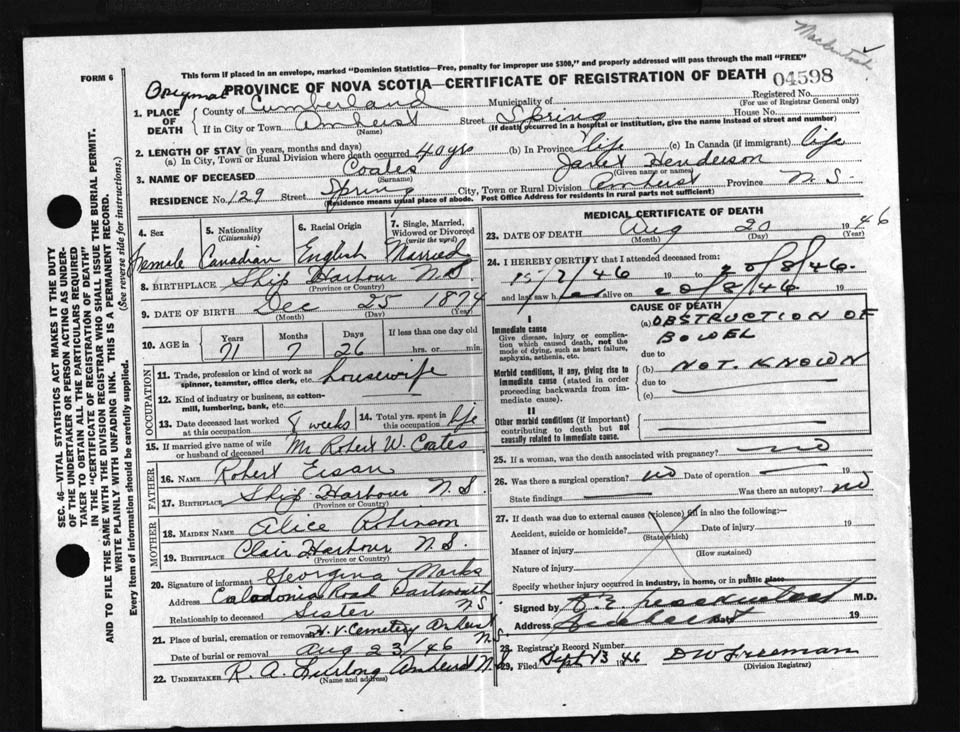 Mackintosh
FORM 6
This form if placed in an envelope, marked "Dominion Statistics—Free, penalty for improper use $300," and properly addressed will pass through the mail "FREE"
Original
PROVINCE OF NOVA SCOTIA—CERTIFICATE OF REGISTRATION OF DEATH 04598
1. PLACE OF DEATH
County of Cumberland Municipality of Registered No.
(For use of Registrar General only)
If in City or Town Amherst Street Spring House No.
(Name) (If death occurred in a hospital or institution, give the name instead of street and number)
2. LENGTH OF STAY (in years, months and days)
(a) In City, Town or Rural Division where death occurred 40 yrs (b) In Province life (c) In Canada (if immigrant) life
3. NAME OF DECEASED Coates Janet Henderson
(Surname) (Given name or names)
RESIDENCE No. 129 Street Spring City, Town or Rural Division Amherst Province N.S.
(Residence means usual place of abode. Post Office Address for residents in rural parts not sufficient)
4. Sex
Female
5. Nationality
(Citizenship)
Canadian
6. Racial Origin
English
7. Single, Married, Widowed or Divorced
(write the word)
Married
8. BIRTHPLACE Ship Harbour N.S.
(Province or Country)
9. DATE OF BIRTH Dec 25 1874
(Month) (Day) (Year)
10. AGE in Years Months Days If less than one day old
71 7 26 hrs. or min.
OCCUPATION
11. Trade, profession or kind of work as spinner, teamster, office clerk, etc. housewife
12. Kind of industry or business, as cotton-mill, lumbering, bank, etc.
13. Date deceased last worked at this occupation 8 weeks
14. Total yrs. spent in this occupation life
15. If married give name of wife or husband of deceased Mr Robert W. Coates
FATHER
16. NAME Robert Eisan
17. BIRTHPLACE Ship Harbour N.S.
(Province or Country)
MOTHER
18. MAIDEN NAME Alice Robinson
19. BIRTHPLACE Clair Harbour N.S.
(Province or Country)
20. Signature of informant Georgina Marks
Address Caledonia Road Dartmouth N.S
Relationship to deceased Sister
21. Place of burial, cremation or removal H.V. Cemetery Amherst N.S.
Date of burial or removal Aug 23/46
22. UNDERTAKER R. A. Furlong Amherst N.S.
(Name and address)
MEDICAL CERTIFICATE OF DEATH
23. DATE OF DEATH Aug 20 1946
(Month) (Day) (Year)
24. I HEREBY CERTIFY that I attended deceased from:
15/7/46 19 to 20/8/46. 19
and last saw her alive on 20/8/46 19
CAUSE OF DEATH
I
Immediate cause
Give disease, injury or complication which caused death, not the mode of dying, such as heart failure, asphyxia, asthenia, etc.
(a) OBSTRUCTION OF BOWEL
due to
Morbid conditions, if any, giving rise to immediate cause (stated in order proceeding backwards from immediate cause).
(b) NOT. KNOWN
due to
(c)
II
Other morbid conditions (if important) contributing to death but not causally related to immediate cause.
25. If a woman, was the death associated with pregnancy? no
26. Was there a surgical operation? no Date of operation 19
State findings Was there an autopsy? no
27. If death was due to external causes (violence) fill in also the following:
Accident, suicide or homicide? Date of injury 19
(State which)
Manner of injury
(How sustained)
Nature of injury
Specify whether injury occurred in industry, in home, or in public place
Signed by M.D.
Address Date 19
28. Registrar's Record Number
29. Filed Sept 13 1946 D W Freeman
(Division Registrar)
SEC. 46—VITAL STATISTICS ACT MAKES IT THE DUTY
OF THE UNDERTAKER OR PERSON ACTING AS UNDER-
TAKER TO OBTAIN ALL THE PARTICULARS REQUIRED
IN THE "CERTIFICATE OF REGISTRATION OF DEATH"
AND TO FILE THE SAME WITH THE DIVISION REGISTRAR WHO SHALL ISSUE THE BURIAL PERMIT.
WRITE PLAINLY WITH UNFADING INK. THIS IS A PERMANENT RECORD.
Every item of information should be carefully supplied. (See reverse side for instructions.)